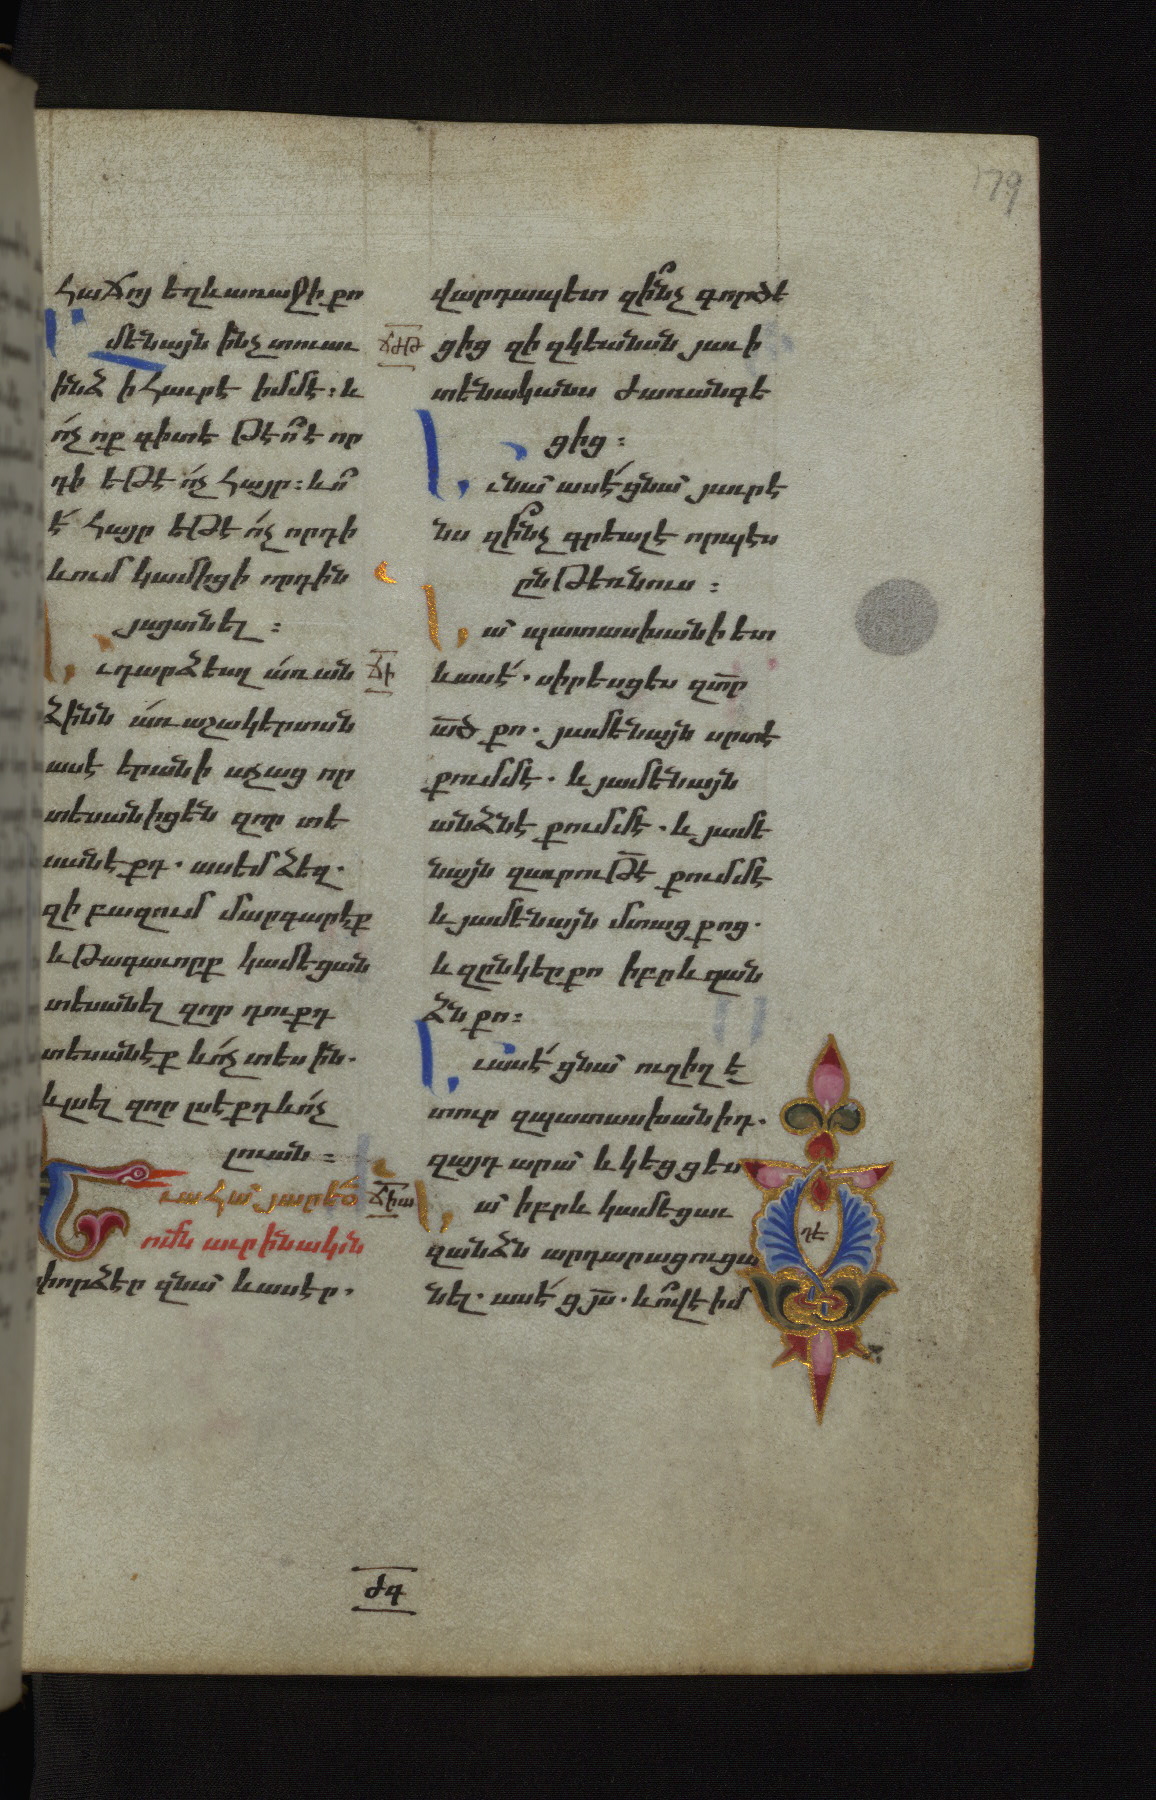 179
հաճոյ եղև առաջի քո
Ամենայն ինչ տուաւ
ինձ ի հաւրէ իմմէ։ և
ոչ ոք գիտէ թէ ո՞ է որ
դի եթէ ոչ հայր։ և ո՞
է հայր եթէ ոչ որդի
և ում կամիցի որդին
յայտնել։
Եւ դարձեալ առ ան
ձինն առ աշակերտսն
ասէ երանի աչաց որ
տեսանիցեն զոր տե
սանէքդ. ասեմ ձեզ.
զի բազում մարգարէք
և թագաւորք կամեցան
տեսանել զոր դուքդ
տեսանէք և ոչ տեսին.
և լսել զոր լսէքդ և ոչ
լուան։
Եւ ահա յարեծ
ոմն աւրինական
փորձէր զնա և ասէր.
ՃԺԹ
ՃԻ
ՃԻԱ
վարդապետ զի՞նչ գործե
ցից զի զկեանսն յաւի
տենականս ժառանգե
ցից։
Եւ նա ասէ ցնա յաւրէ
նս զի՞նչ գրեալ է որպէս
ընթեռնուս։
Նա պատասխանի ետ
և ասէ. սիրեսցես զտր
ած քո. յամենայն սրտէ
քումմէ. և յամենայն
անձնէ քումմէ. և յամե
նայն զաւրութէ քումմէ
և յամենայն մտաց քոց.
և զընկեր քո իբրև զան
ձն քո։
Եւ ասէ ցնա ուղիղ է
տուր զպատասխանիդ.
զայդ արա և կեցցես
Նա իբրև կամեցաւ
զանձն արդարացուցա
նել. ասէ ցյս. և ո՞վ է իմ
ԺԳ